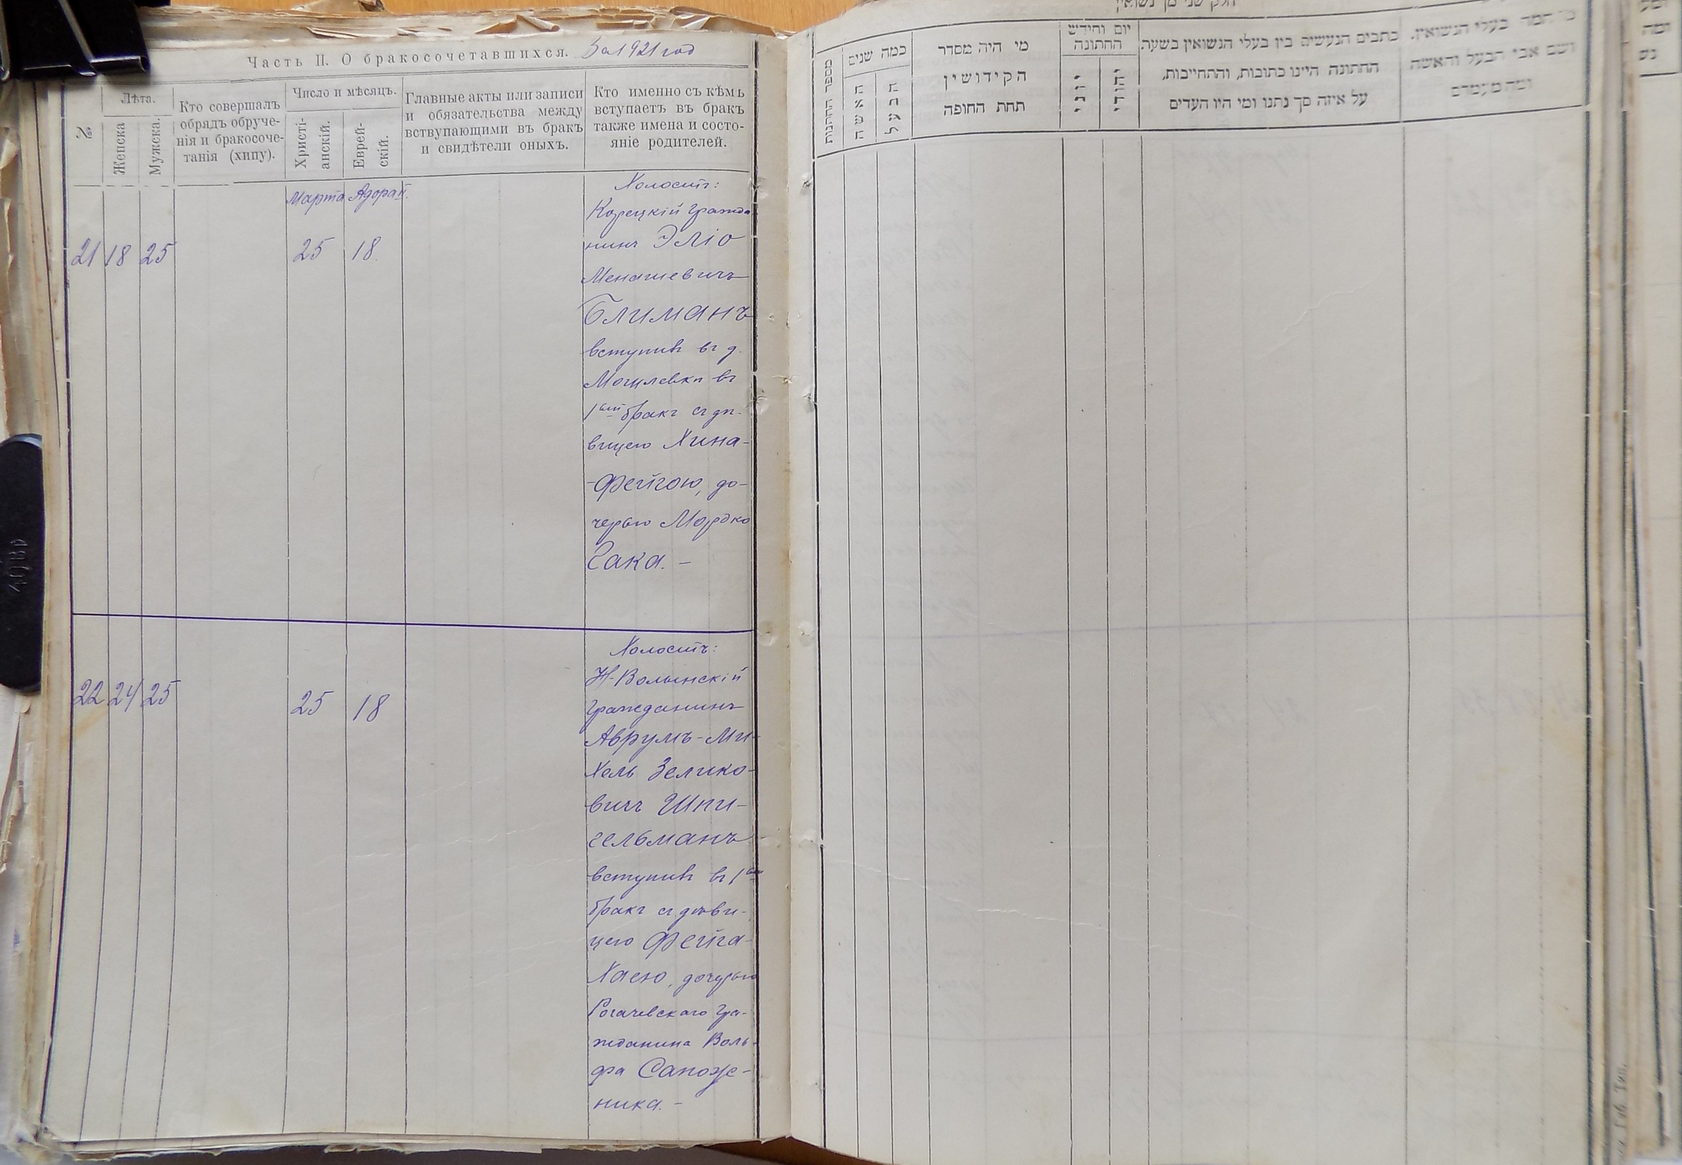 Часть II. О бракосочетавшихся. За 1921 год
№
Лѣта.
Женска
Мужска.
Кто совершалъ
обрядъ обруче-
нія и бракосоче-
танія (хипу).
Число и мѣсяцъ.
Христі-
анскій.
Еврей-
скій.
Главные акты или записи
и обязательства между
вступающими въ бракъ
и свидѣтели оныхъ.
Кто именно съ кѣмъ
вступаетъ въ бракъ
также имена и состо-
яніе родителей.
Марта Адора II.
21 18 25 25 18
Холостъ:
Корецкій гражда
нинъ Эліо
Менашевичъ
Блиманъ
вступивъ въ д.
Могилевкѣ въ
1ый бракъ съ дѣ-
вицею Хина-
Фейгою, до-
черью Мордко
Гака. —
22 24 25 25 18
Холостъ:
Н-Волынскій
гражданинъ
Аврумъ-Ми-
хель Зелико-
вичъ Шпи-
гельманъ
вступивъ въ 1ый
бракъ съ дѣви-
цею Фейга-
Хаею, дочерью
Рогачевскаго гра-
жданина Воль-
фа Сапож-
ника. —
חלק שני מן נשואין
מספר החתונות
כמה שנים
האשה
הבעל
מי היה מסדר
הקידושין
תחת החופה
יום וחודש
החתונה
יוני
יהודי
כתבים הנעשים בין בעלי הנשואין בשעת
החתונה היינו כתובות, והתחייבות,
על איזה סך נתנו ומי היו העדים
בעלי הנשואין.
ושם אבי הבעל והאשה
ומה מעמדם